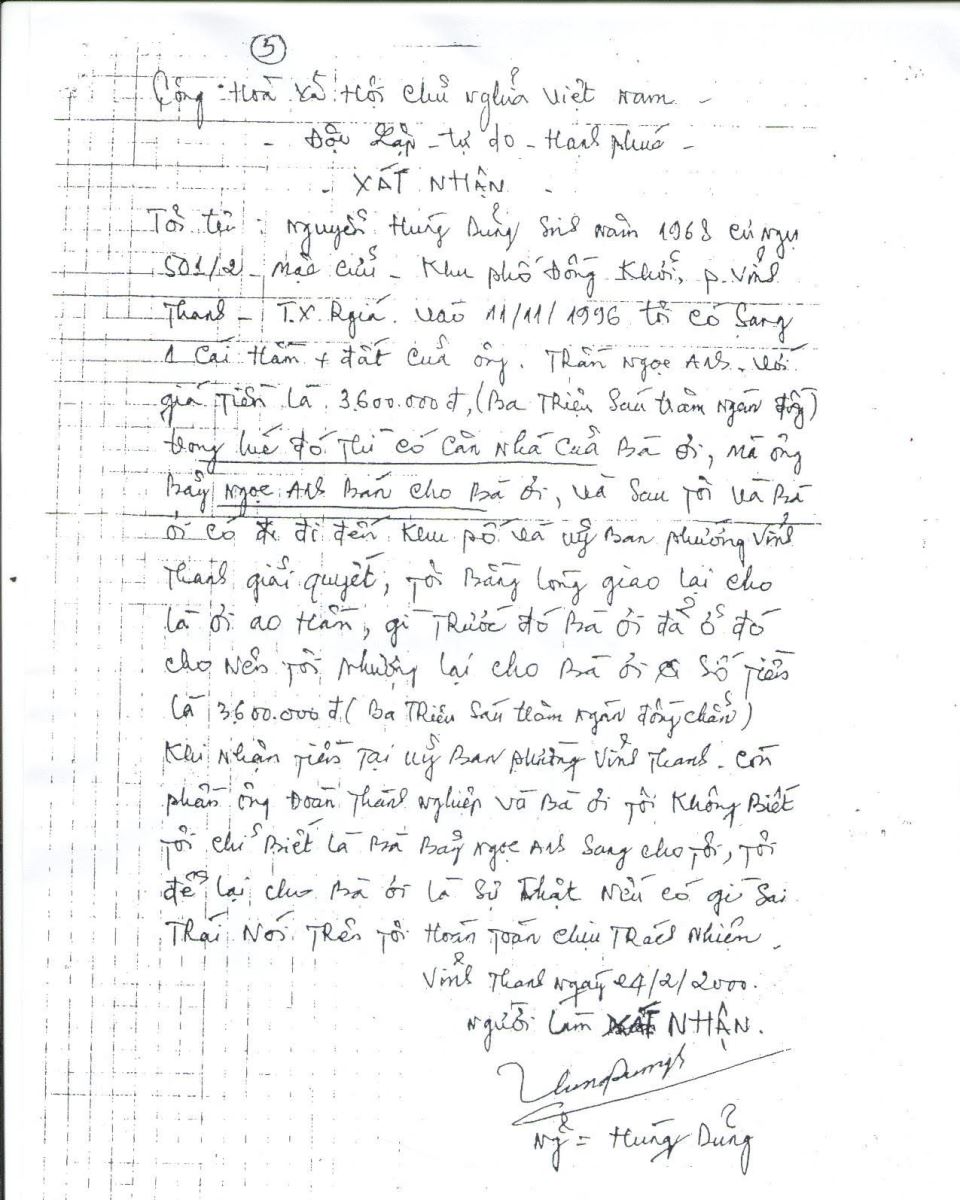 5
Cộng Hoà Xã Hội Chủ Nghĩa Việt Nam -
- Độc Lập - Tự do - Hạnh phúc -
- XÁT NHẬN -
Tôi tên : Nguyễn Hùng Dũng Sinh Năm 1968 cư ngụ
501/2 - Mạc Cửu - Khu phố Đống Khởi, p. Vĩnh
Thanh - T.X. Rgiá. Vào 11/11/1996 tôi có Sang
1 Cái Hầm + đất Của ông . Trần Ngọc Anh . Với
giá Tiền Là 3.600.000đ, (Ba Triệu Sáu trăm Ngàn đồng)
trong lúc đó Thì có Căn Nhà Của Bà ới, Mà ông
Bẩy Ngọc Anh Bán cho Bà ới, và Sau Tôi và Bà
ới có đi đến Khu phố và uỷ Ban phường Vĩnh
Thanh giải quyết, Tôi Bằng Lòng giao Lại cho
Là ới ao Hầm, gì Trước đó Bà ới đã ở đó
cho Nên Tôi Nhượng lại cho Bà ới Số Tiền
Là 3.600.000đ ( Ba Triệu Sáu trăm Ngàn đồng chẵn )
Khi Nhận Tiền Tại uỷ Ban phường Vĩnh Thanh . Còn
phần ông Đoàn Thành Nghiệp và Bà ới Tôi Không Biết
Tôi chỉ Biết Là Bà Bảy Ngọc Anh Sang cho Tôi, Tôi
để lại cho Bà ới Là Sự Thật Nếu có gì Sai
Trái Nói Trên Tôi Hoàn Toàn chịu Trách Nhiệm .
Vĩnh Thanh Ngày 24/2/2000.
Người Làm XÁT NHẬN.
HungDung
Ng = Hùng Dũng